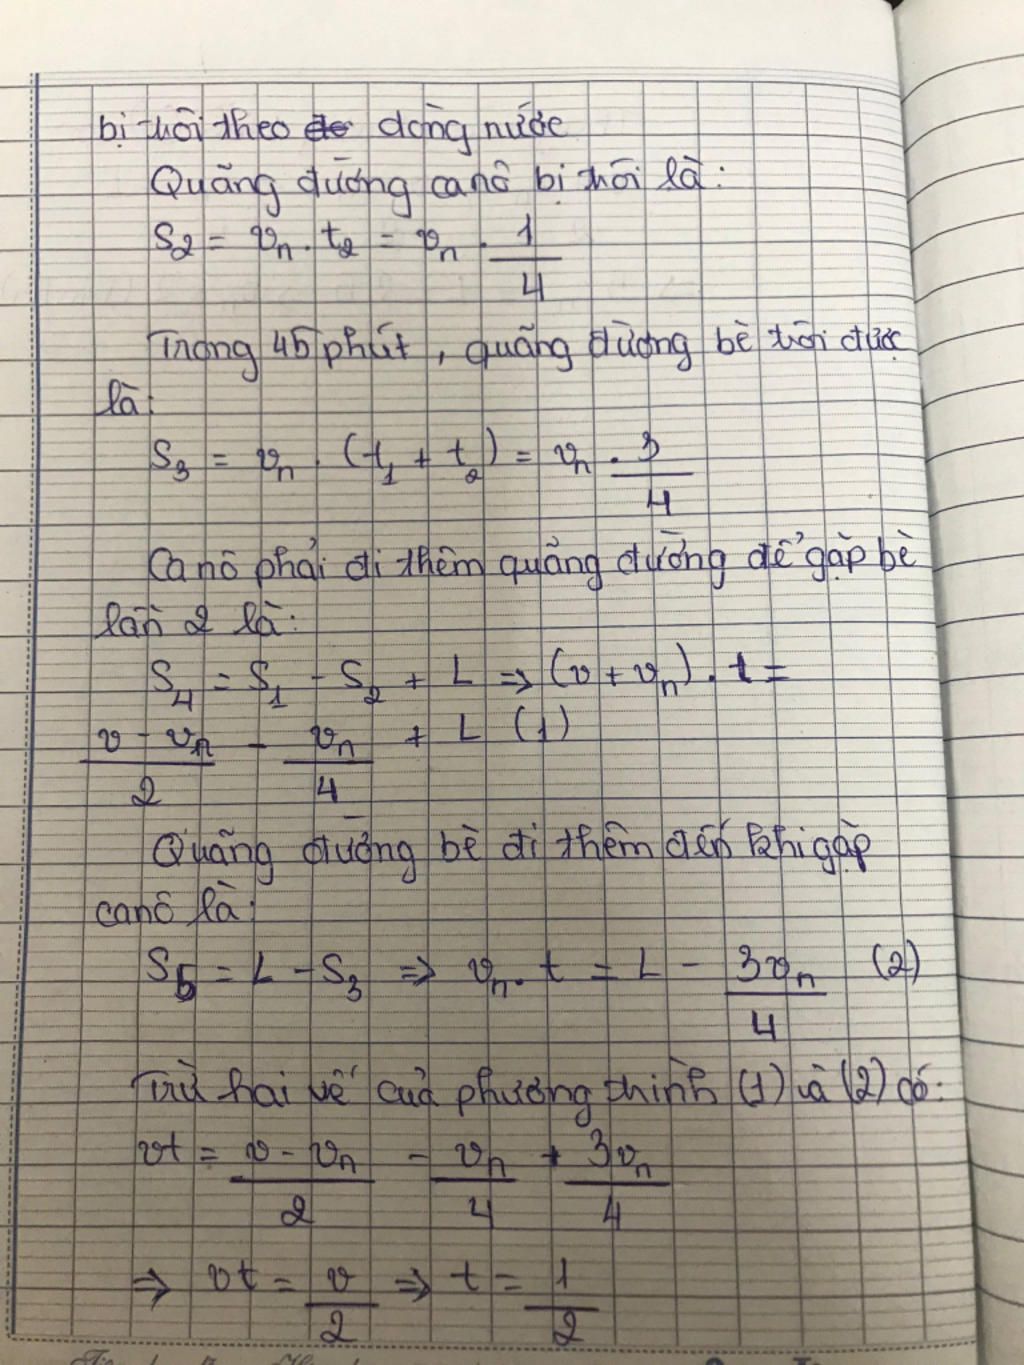 bị trôi theo dòng nước
Quãng đường canô bị trôi là:
S₂ = vₙ . t₂ = vₙ . 1/4
Trong 45 phút, quãng đường bè trôi được
là:
S₃ = vₙ . (t₁ + t₂) = vₙ . 3/4
Canô phải đi thêm quãng đường để gặp bè
lần 2 là:
S₄ = S₁ - S₂ + L ⇒ (v + vₙ) . t =
(v - vₙ)/2 - vₙ/4 + L (1)
Quãng đường bè đi thêm đến khi gặp
canô là:
S₅ = L - S₃ ⇒ vₙ . t = L - 3vₙ/4 (2)
Trừ hai vế của phương trình (1) và (2) có:
vt = (v - vₙ)/2 - vₙ/4 + 3vₙ/4
⇒ vt = v/2 ⇒ t = 1/2